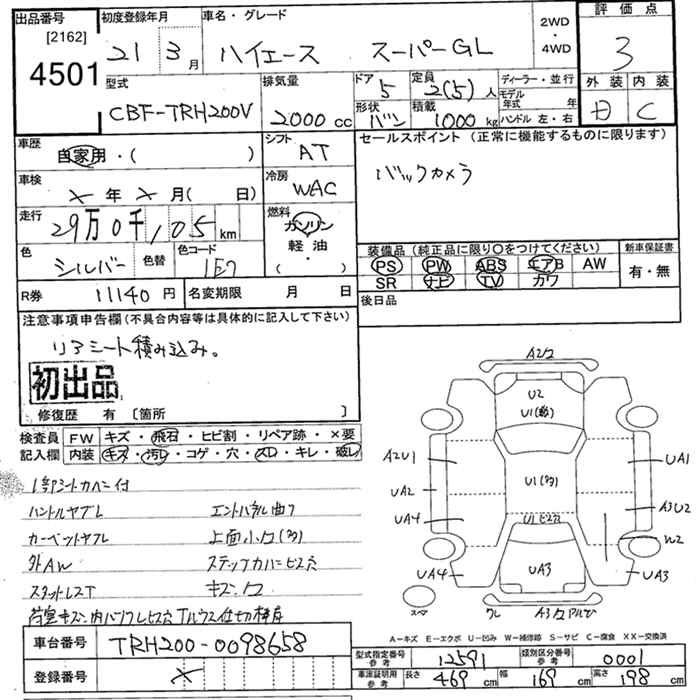 出品番号 [2162] 4501
初度登録年月 21 3月
車名・グレード ハイエース スーパーGL
2WD・4WD
評価点 3
型式 CBF-TRH200V
排気量 2000 cc
ドア 5
形状 バン
定員 2(5)人
積載 1000 kg
ディーラー・並行
モデル年式 年
ハンドル 左・右
外装 内装
C
車歴 自家用・( )
シフト AT
車検 × 年 × 月( 日)
冷房 WAC
走行 29万0千105 km
燃料 ガソリン 軽油・( )
色 シルバー 色替
色コード 1E7
R券 11140 円
名変期限 月 日
セールスポイント(正常に機能するものに限ります)
バックカメラ
装備品(純正品に限り○をつけてください)
PS PW ABS エアB AW
SR ナビ TV カワ
新車保証書 有・無
後日品
注意事項申告欄(不具合内容等は具体的に記入して下さい)
リアシート積み込み。
初出品
修復歴 有〔箇所 〕
検査員記入欄
FW キズ・飛石・ヒビ割・リペア跡・×要
内装 キズ・汚レ・コゲ・穴・スレ・キレ・破レ
ハンドルヤブレ
上面小凹(多)
外AW
ステップカバービス穴
スタットレスT
キズ・凹
車台番号 TRH200-0098658
登録番号 ×
U2
U1(多)
A2U1
UA2
UA4
UA4
UA1
A3U2
W2
UA3
UA3
スペア
A-キズ E-エクボ U-凹み W-補修跡 S-サビ C-腐食 XX-交換済
型式指定番号 参考 12591
類別区分番号 参考 0001
車庫証明用 参考 長さ 469 cm 幅 169 cm 高さ 198 cm